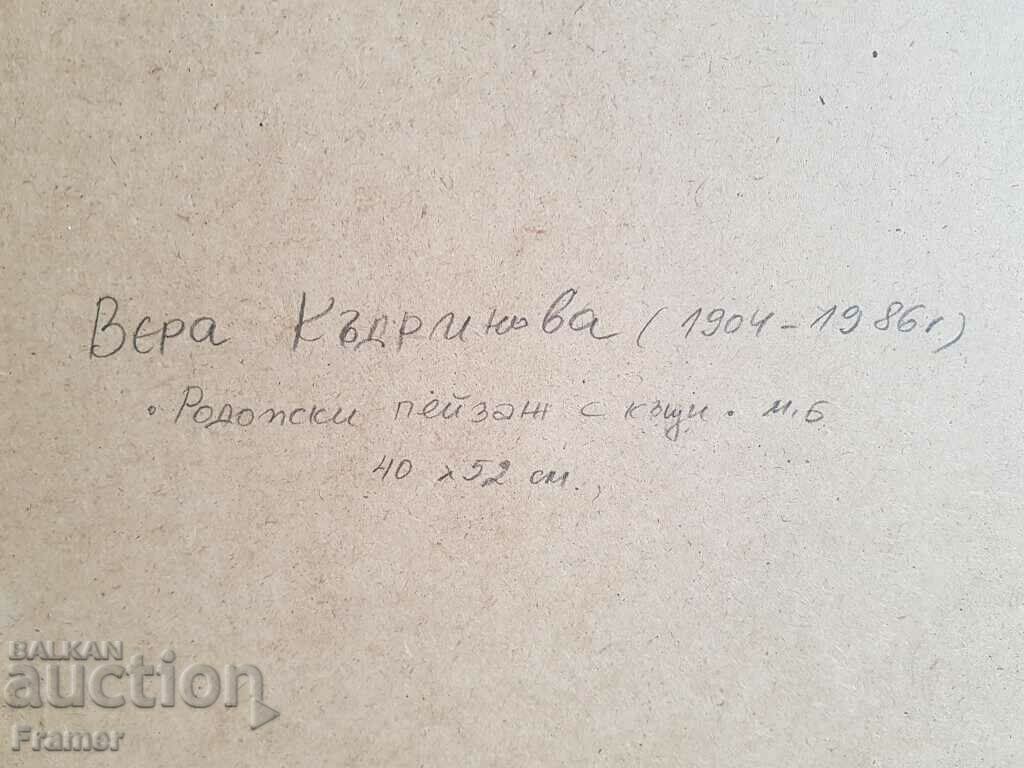 Вера Къдринова (1904-1986г)
• Родопски пейзаж с къщи • м.б
40 x 52 см.
BALKAN
auction
Framer